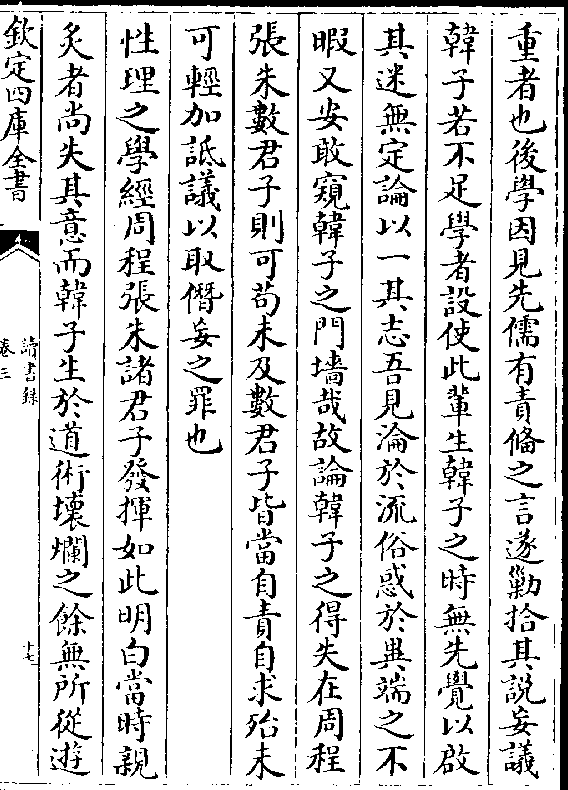 重者也後學因見先儒有責備之言遂勦拾其說妄議
韓子若不足學者設使此輩生韓子之時無先覺以啟
其迷無定論以一其志吾見淪於流俗惑於異端之不
暇又安敢窺韓子之門墻哉故論韓子之得失在周程
張朱數君子則可茍未及數君子皆當自責自求殆未
可輕加詆議以取僭妄之罪也
性理之學經周程張朱諸君子發揮如此明白當時親
炙者尚失其意而韓子生於道術壞爛之餘無所從遊
欽定四庫全書
讀書錄
卷三
十七